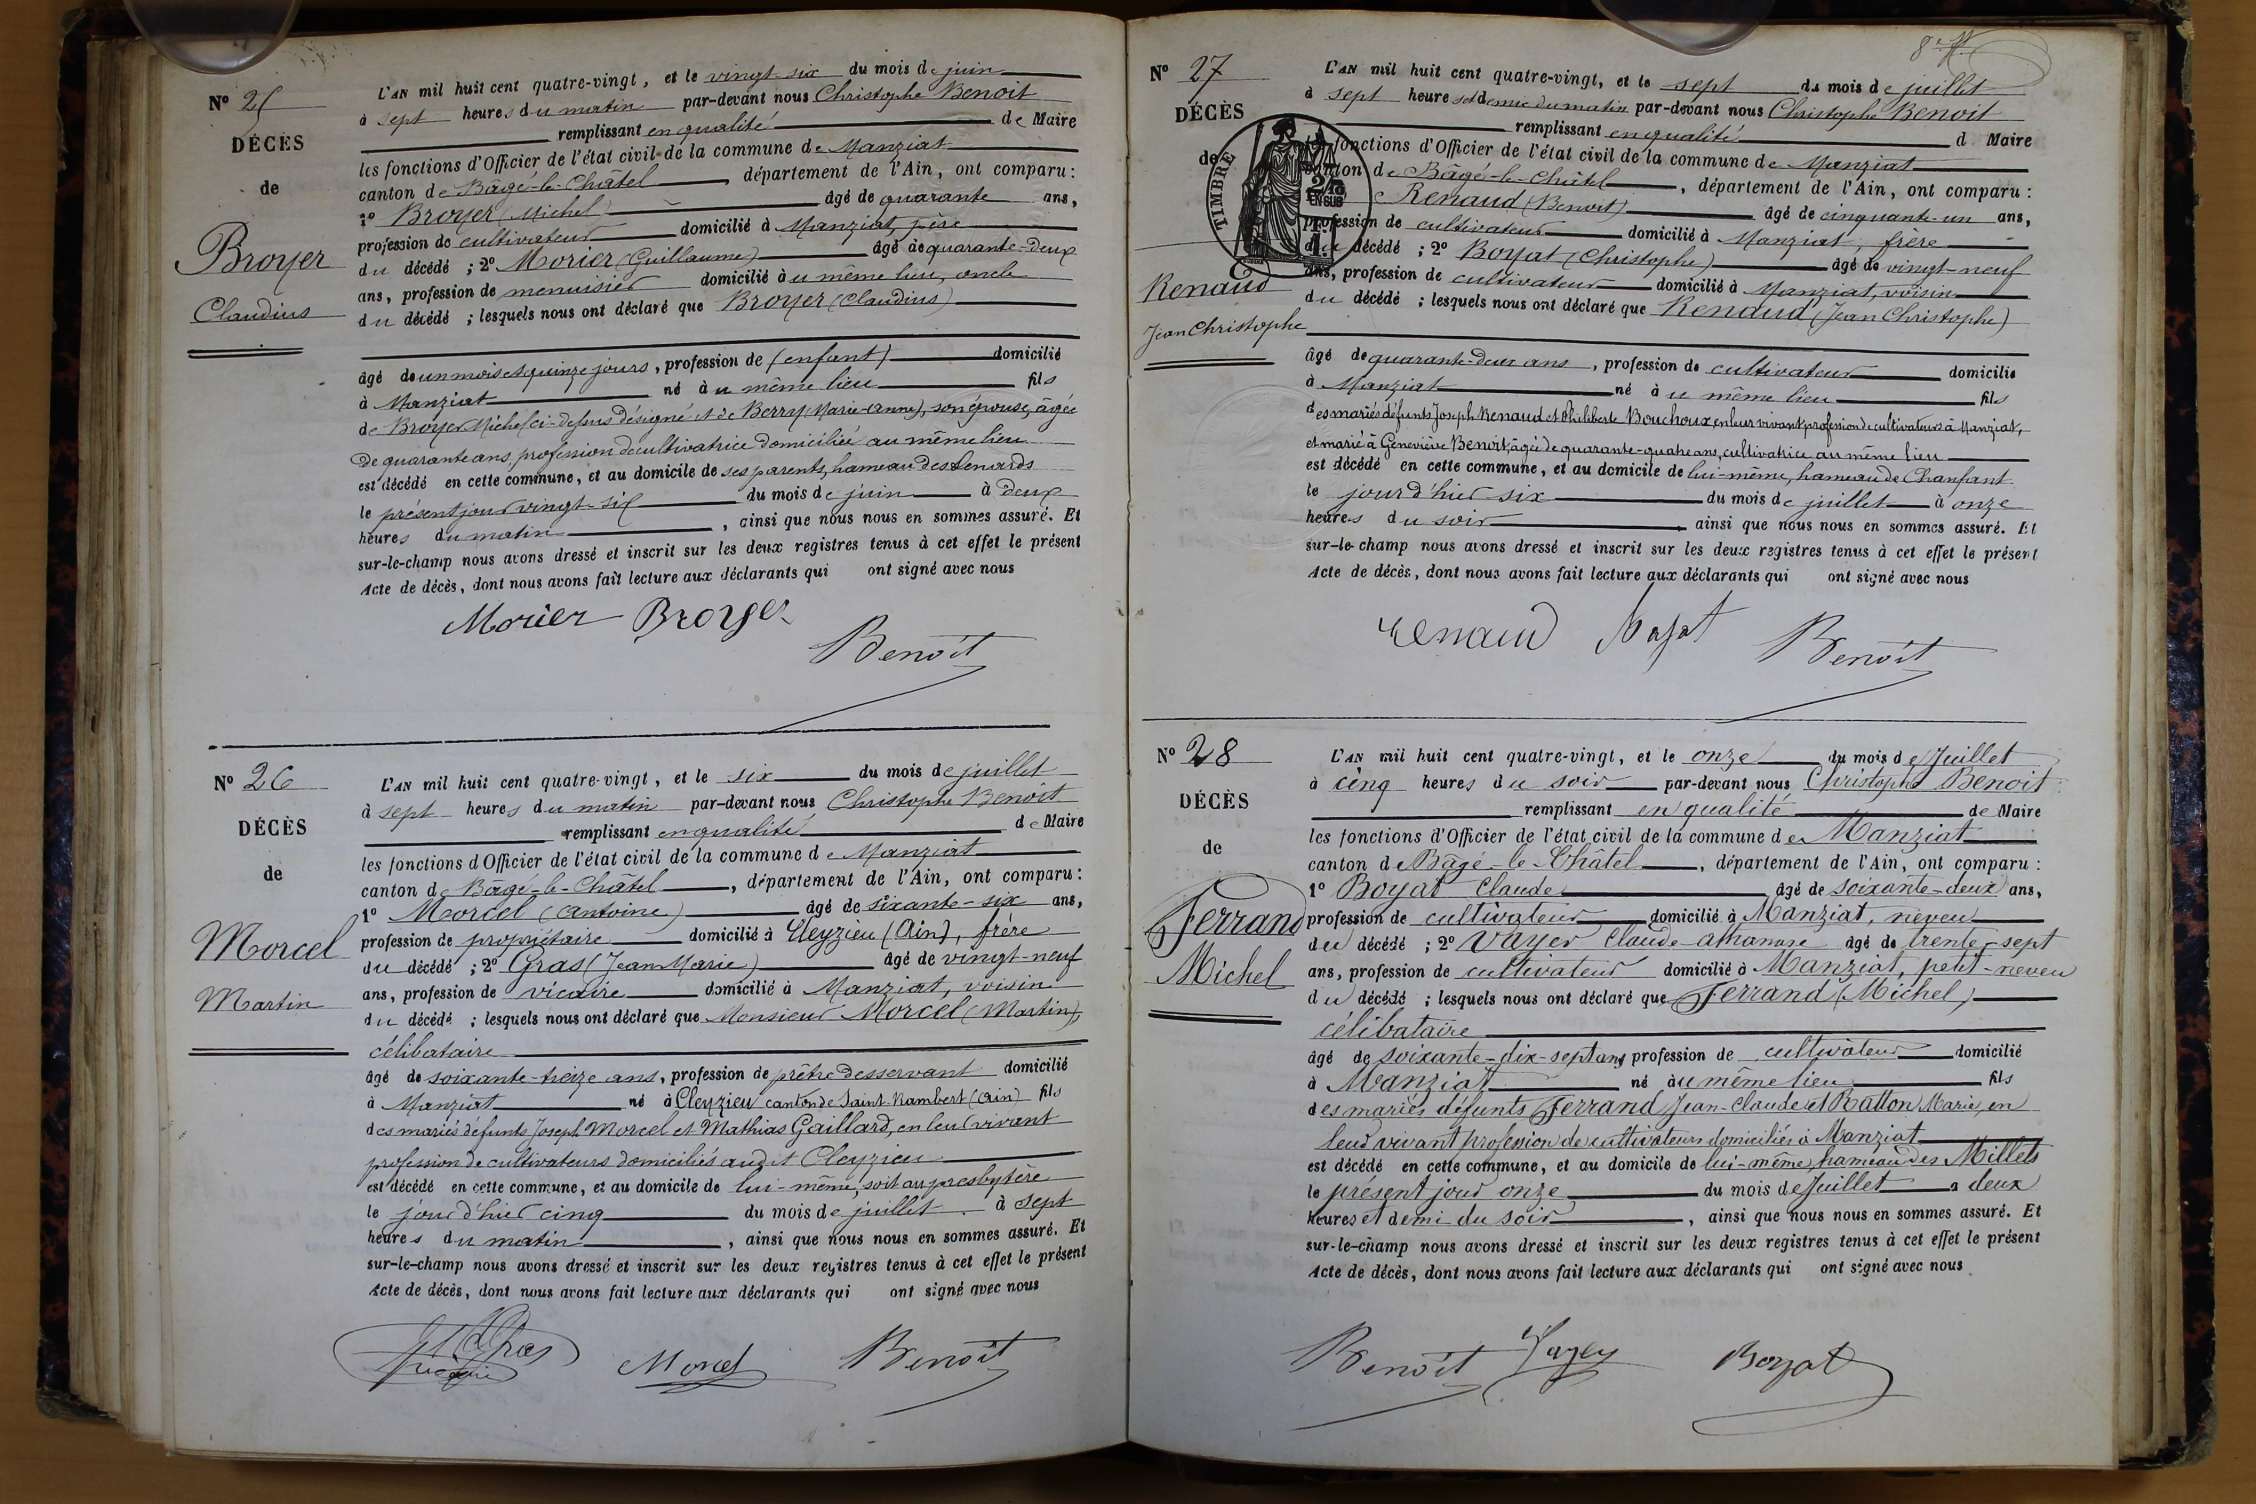 N° 25
DÉCÈS
de
Broyer
Claudius
L'AN mil huit cent quatre-vingt, et le vingt-six du mois de juin
à sept heures du matin par-devant nous Christophe Benoit
remplissant en qualité de Maire
les fonctions d'Officier de l'état civil de la commune de Manziat
canton de Bâgé-le-Châtel, département de l'Ain, ont comparu :
1° Broyer (Michel) âgé de quarante ans,
profession de cultivateur domicilié à Manziat, père
du décédé ; 2° Morier (Guillaume) âgé de quarante-deux
ans, profession de menuisier domicilié à u même lieu, oncle
du décédé ; lesquels nous ont déclaré que Broyer (Claudius)
âgé de un mois et quinze jours, profession de (enfant) domicilié
à Manziat né à u même lieu fils
de Broyer Michel ci-dessus désigné et de Berry (Marie-Anne), son épouse, âgée
de quarante ans, profession de cultivatrice domiciliée au même lieu
est décédé en cette commune, et au domicile de ses parents, hameau des Lenards
le présent jour vingt-six du mois de juin à deux
heures du matin, ainsi que nous nous en sommes assuré. Et
sur-le-champ nous avons dressé et inscrit sur les deux registres tenus à cet effet le présent
Acte de décès, dont nous avons fait lecture aux déclarants qui ont signé avec nous
Morier Broyer
Benoit
N° 26
DÉCÈS
de
Morcel
Martin
L'AN mil huit cent quatre-vingt, et le six du mois de juillet
à sept heures du matin par-devant nous Christophe Benoit
remplissant en qualité de Maire
les fonctions d'Officier de l'état civil de la commune de Manziat
canton de Bâgé-le-Châtel, département de l'Ain, ont comparu :
1° Morcel (Antoine) âgé de sixante-six ans,
profession de propriétaire domicilié à Cleyzieu (Ain), frère
du décédé ; 2° Gras (Jean Marie) âgé de vingt-neuf
ans, profession de vicaire domicilié à Manziat, voisin
du décédé ; lesquels nous ont déclaré que Monsieur Morcel (Martin),
célibataire
âgé de soixante-treize ans, profession de prêtre desservant domicilié
à Manziat né à Cleyzieu canton de Saint-Rambert (Ain) fils
des mariés défunts Joseph Morcel et Mathias Gaillard, en leur vivant
profession de cultivateurs domiciliés audit Cleyzieu
est décédé en cette commune, et au domicile de lui-même, soit au presbytère
le jour d'hier cinq du mois de juillet à sept
heures du matin, ainsi que nous nous en sommes assuré. Et
sur-le-champ nous avons dressé et inscrit sur les deux registres tenus à cet effet le présent
Acte de décès, dont nous avons fait lecture aux déclarants qui ont signé avec nous
Gras
vicaire Morcel Benoit
8e f.
N° 27
DÉCÈS
de
Renaud
Jean Christophe
TIMBRE
L'AN mil huit cent quatre-vingt, et le sept du mois de juillet
à sept heures et demie du matin par-devant nous Christophe Benoit
remplissant en qualité d Maire
fonctions d'Officier de l'état civil de la commune de Manziat
canton de Bâgé-le-Châtel, département de l'Ain, ont comparu :
Renaud (Benoit) âgé de cinquante-un ans,
profession de cultivateur domicilié à Manziat, frère
du décédé ; 2° Boyat (Christophe) âgé de vingt-neuf
ans, profession de cultivateur domicilié à Manziat, voisin
du décédé ; lesquels nous ont déclaré que Renaud (Jean Christophe)
âgé de quarante-deux ans, profession de cultivateur domicilié
à Manziat né à u même lieu fils
des mariés défunts Joseph Renaud et Philiberte Bouchoux en leur vivant profession de cultivateurs à Manziat,
et marié à Geneviève Benoit, âgée de quarante-quatre ans, cultivatrice au même lieu
est décédé en cette commune, et au domicile de lui-même, hameau de Chanfant
le jour d'hier six du mois de juillet à onze
heures du soir ainsi que nous nous en sommes assuré. Et
sur-le-champ nous avons dressé et inscrit sur les deux registres tenus à cet effet le présent
Acte de décès, dont nous avons fait lecture aux déclarants qui ont signé avec nous
renaud Boyat Benoit
N° 28
DÉCÈS
de
Ferrand
Michel
L'AN mil huit cent quatre-vingt, et le onze du mois de Juillet
à cinq heures du soir par-devant nous Christophe Benoit
remplissant en qualité de Maire
les fonctions d'Officier de l'état civil de la commune de Manziat
canton de Bâgé-le-Châtel, département de l'Ain, ont comparu :
1° Boyat Claude âgé de soixante-deux ans,
profession de cultivateur domicilié à Manziat, neveu
du décédé ; 2° Vayer Claude-athanase âgé de trente-sept
ans, profession de cultivateur domicilié à Manziat, petit-neveu
du décédé ; lesquels nous ont déclaré que Ferrand (Michel)
célibataire
âgé de soixante-dix-sept ans profession de cultivateur domicilié
à Manziat né à u même lieu fils
des mariés défunts Ferrand Jean-Claude et Ratton Marie, en
leur vivant profession de cultivateurs domiciliés à Manziat
est décédé en cette commune, et au domicile de lui-même, hameau des Millets
le présent jour onze du mois de Juillet à deux
heures et demi du soir, ainsi que nous nous en sommes assuré. Et
sur-le-champ nous avons dressé et inscrit sur les deux registres tenus à cet effet le présent
Acte de décès, dont nous avons fait lecture aux déclarants qui ont signé avec nous
Benoit Vayer Boyat